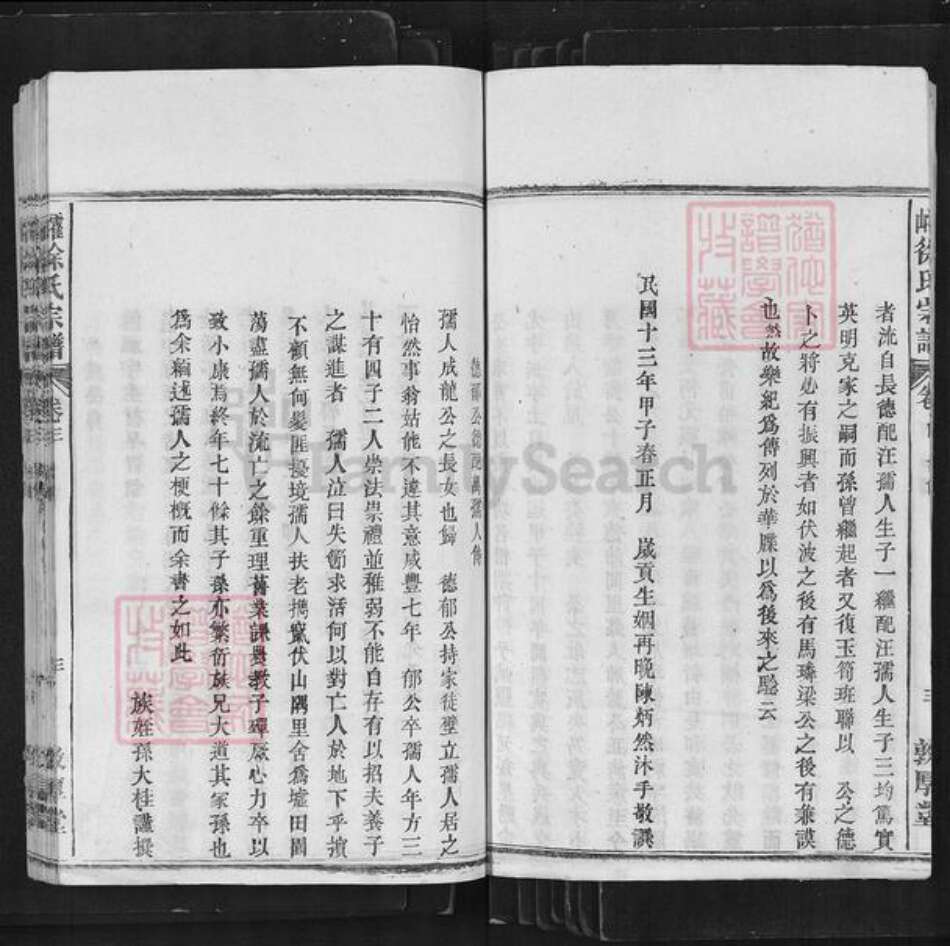 徐氏宗譜
者流自長德配汪孺人生子一繼配汪孺人生子三均篤實
英明克家之嗣而孫曾繼起者又復玉筍班聯以 公之德
卜之將必有振興者如伏波之後有馬璘梁公之後有兼謨
也然故樂紀為傳列於華牒以為後來之驗云
民國十三年甲子春正月 歲貢生姻再晚陳炳然沐手敬譔
三
敦厚堂
德郁公德配 孺人傳
孺人成龍公之長女也歸 德郁公持家徒壁立孺人居之
怡然事翁姑能不違其意咸豐七年 郁公卒孺人年方三
十有四子二人崇法崇禮並稚弱不能自存有以招夫養子
之謀進者 孺人泣曰失節求活何以對亡人於地下乎擯
不顧無何髮匪擾境孺人扶老攜竄伏山隅里舍為墟田園
蕩盡孺人於流亡之餘重理舊業課農教子殫厥心力卒以
致小康焉終年七十餘其子孫亦繁衍族兄大道其冢孫也
為余緬述孺人之梗概而余書之如此
族姪孫大桂謹撰
徐氏宗譜
卷三
三
敦厚堂
譜學會
收藏
FamilySearch